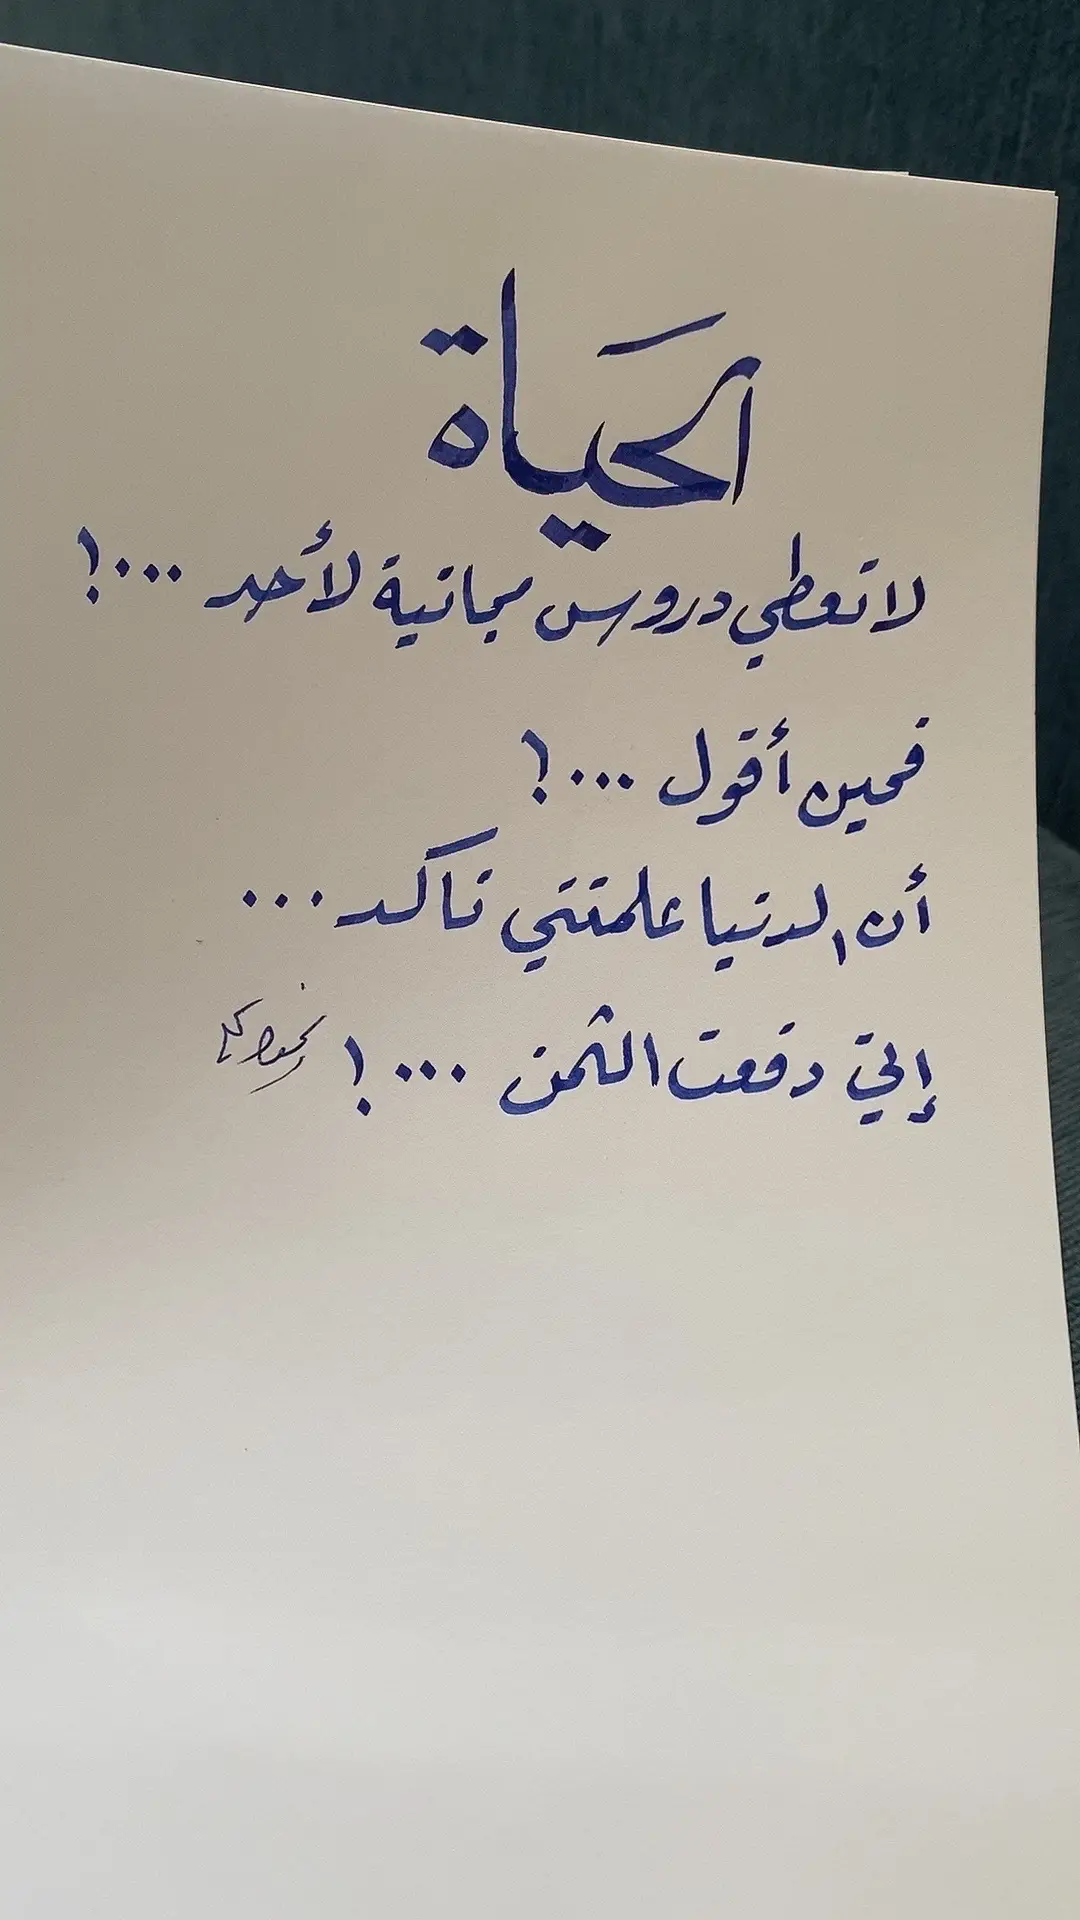 الحَياة
لا تعطي دروس مجانية لأحد ...!
فحين أقول ...!
أن الدنيا علمتني تأكد ...
إني دفعت الثمن ...!